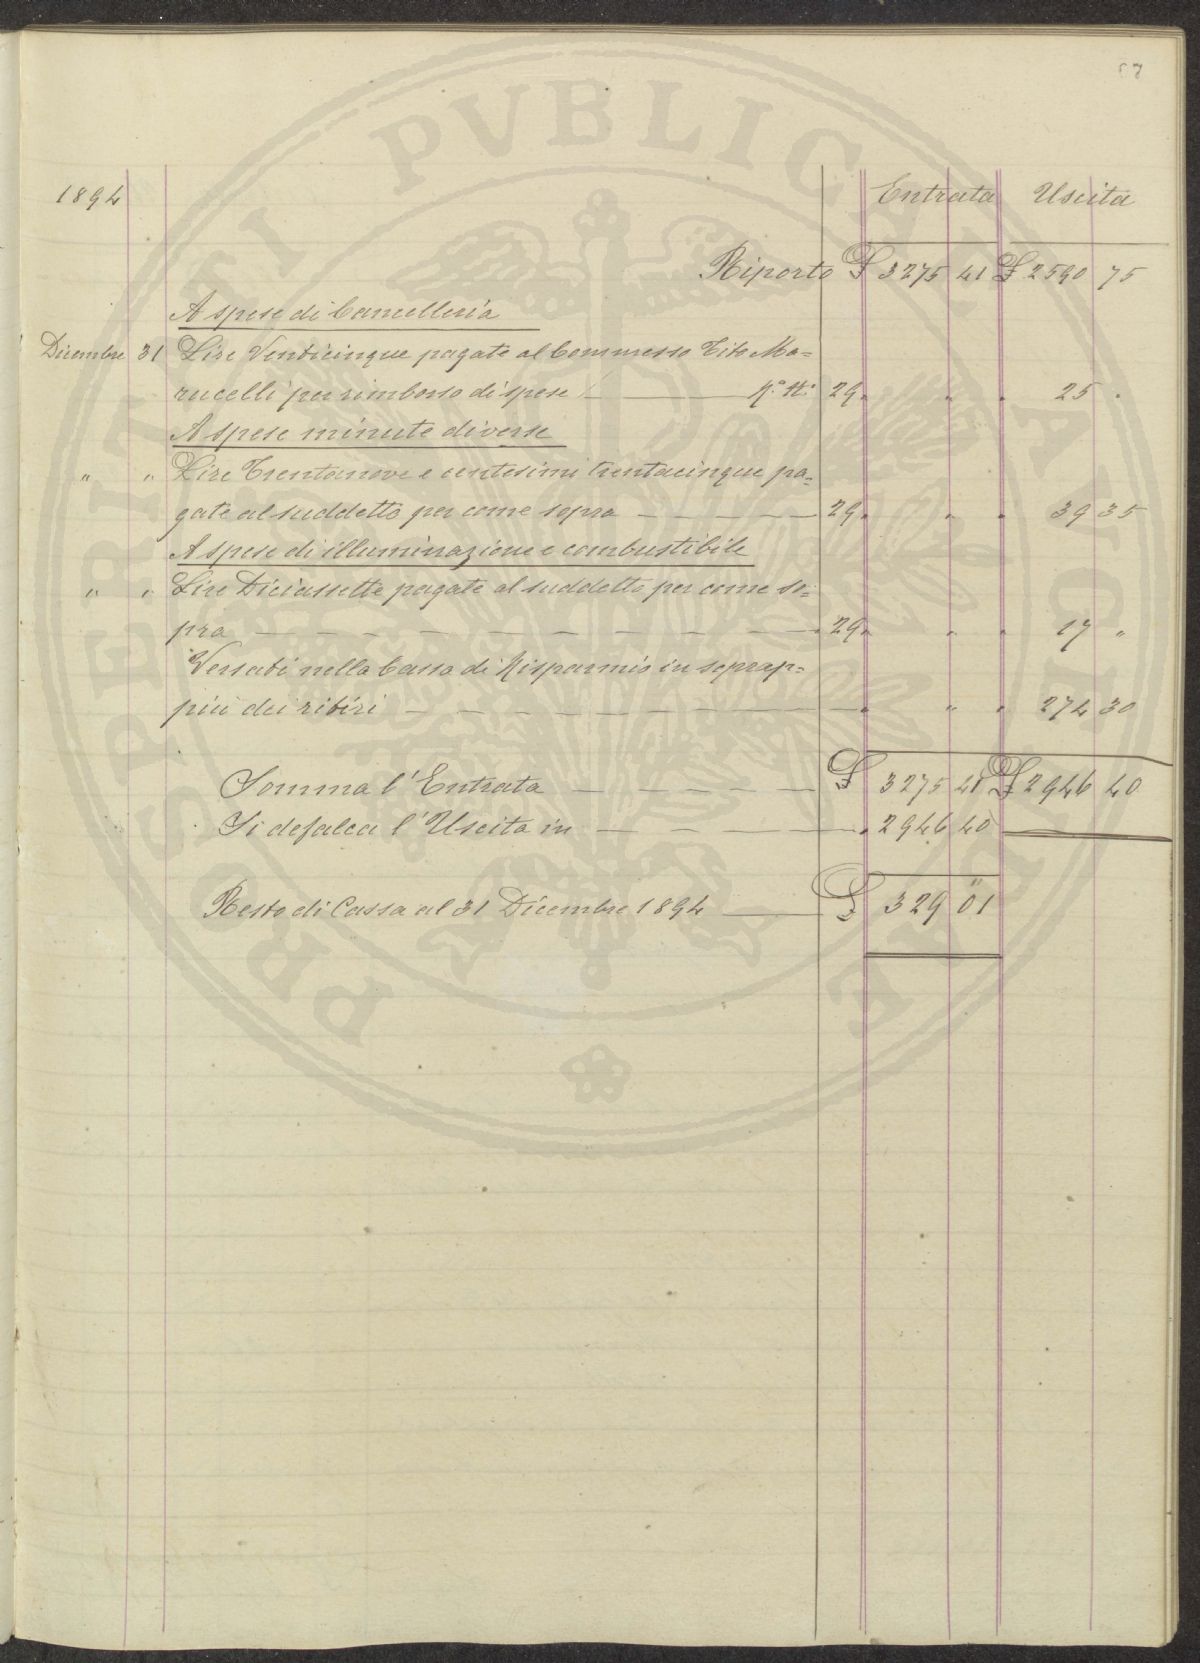 67
1894 Entrata Uscita
Riporto £ 3275 41 £ 2590 75
A spese di Cancelleria
Dicembre 31 Lire Venticinque pagate al Commesso Tito Ma=
rucelli per rimborso di spese 29 " " " 25 "
A spese minute diverse
" " Lire Trentanove e centesimi trentacinque pa=
gate al suddetto per come sopra 29 " " " 39 35
A spese di illuminazione e combustibile
" " Lire Diciassette pagate al suddetto per come so=
pra 29 " " " 17 "
Versati nella Cassa di Risparmio in soprap=
più dei ritiri " " " 274 30
Somma l'Entrata £ 3275 41 £ 2946 40
Si defalca l'Uscita in " 2946 40
Resto di Cassa al 31 Dicembre 1894 £ 329 01
PROSPERITATI PVBLICAE AVGENDAE